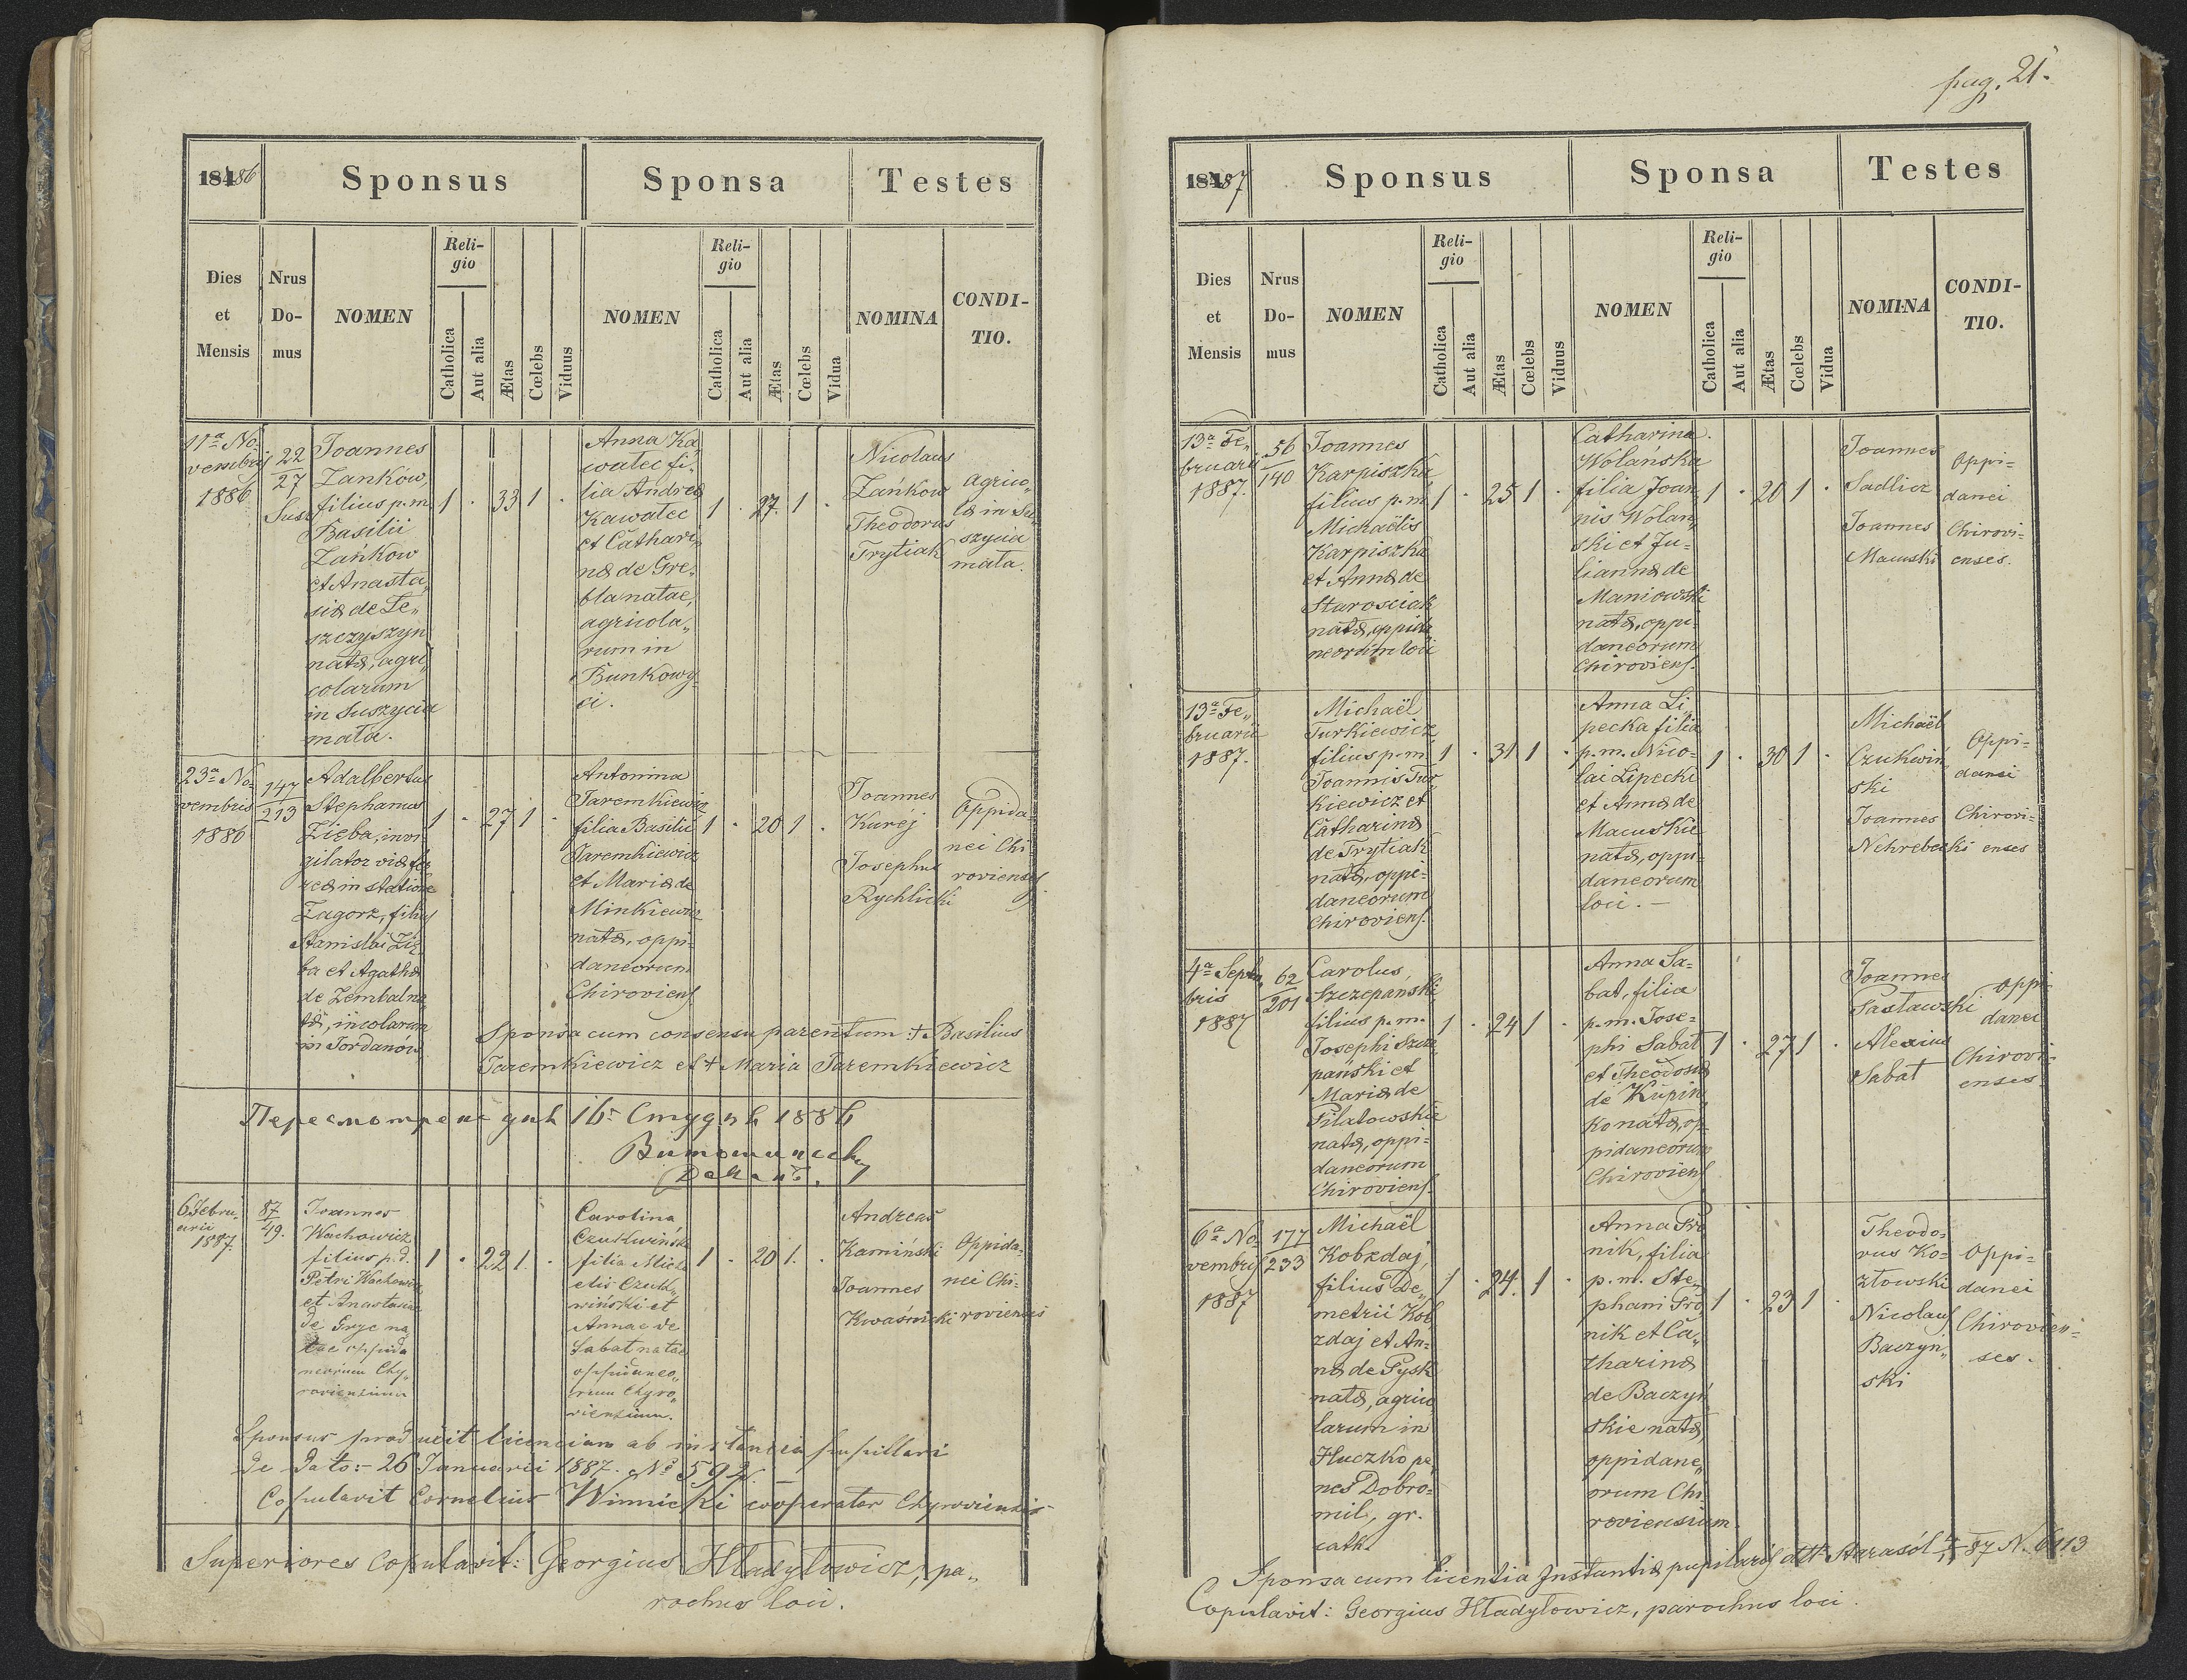 18486
Sponsus
Sponsa
Testes
Dies
et
Mensis
Nrus
Do-
mus
NOMEN
Reli-
gio
Catholica
Aut alia
Ætas
Cœlebs
Viduus
NOMEN
Reli-
gio
Catholica
Aut alia
Ætas
Cœlebs
Vidua
NOMINA
CONDI-
TIO.
11ª No-
vembris
1886
22
27
Susz
Joannes
Zańków,
filius p.m.
Basilii
Zańkow
et Anasta„
siæ de Te„
szczyszyn
natæ, agri„
colarum
in Suszycia
mała.
1 · 33 1 ·
Anna Ka„
watec fi„
lia Andreæ
Kawatec
et Cathari„
næ de Gre„
bla natae,
agricola„
rum in
Bunkowy„
ci.
1 · 27. 1 ·
Nicolaus
Zańkow
Theodorus
Trytiak
agrico„
læ in Su„
szycia
mała.
23ª No„
vembris
1886
147
213
Adalbertus
Stephanus
Zięba, invi„
gilator viæ fer„
reæ in statione
Zagorz, filius
Stanislai Zię„
ba et Agathæ
de Zembal na„
tæ, incolarum
in Jordanów
1 · 27 1 ·
Antonina
Jaremkiewicz
filia Basilii
Jaremkiewicz
et Mariæ de
Minkiewicz
natæ, oppi=
daneorum
Chiroviens.
1 · 20 1 ·
Joannes
Kurej
Josephus
Rychlicki
Oppida
nei Chi„
rovienses.
Sponsa cum consensu parentum: + Basilius
Jaremkiewicz et + Maria Jaremkiewicz
Пересмотрено днѣ 16. Студнѣ 1886
Деканъ.
6 Febru„
arii
1887.
87
49.
Joannes
Wachowicz
filius p.d.
Petri Wachowicz
et Anastasiae
de Gryc na„
tae oppida
neorum Chy„
roviensium
1 · 22 1. ·
Carolina
Czuchwińska
filia Mich„
elis Czuch„
wiński et
Annae de
Sabat natae
oppidaneo„
rum Chyro„
viensium.
1 · 20 1. ·
Andreas
Kamiński
Joannes
Kwaśnicki
Oppida„
nei Chi„
rovienses
Sponsus produxit licenciam ab instancia pupillari
de dato:- 26 Januarii 1887. No 592. —
Copulavit Cornelius Winnicki cooperator Chyroviensis
Superiores copulavit: Georgius Hładyłowicz, pa„
rochus loci.
pag. 21.
18487
Sponsus
Sponsa
Testes
Dies
et
Mensis
Nrus
Do-
mus
NOMEN
Reli-
gio
Catholica
Aut alia
Ætas
Cœlebs
Viduus
NOMEN
Reli-
gio
Catholica
Aut alia
Ætas
Cœlebs
Vidua
NOMINA
CONDI-
TIO.
13ª Fe„
bruarii
1887.
56
140
Joannes
Karpiszka
filius p.m.
Michaëlis
Karpiszka
et Annæ de
Starosciak
natæ, oppida
neorum loci
1 · 25 1 ·
Catharina
Wolańska
filia Joan„
nis Wolań„
ski et Ju=
liannæ de
Maniowski
natæ, oppi=
daneorum
Chiroviens.
1 · 20 1 ·
Joannes
Sadlicz
Joannes
Macuski
Oppi=
danei
Chirovi=
enses.
13ª Fe„
bruarii
1887.
Michaël
Turkiewicz
filius p.m.
Joannis Tur„
kiewicz et
Catharinæ
de Trytiak
natæ, oppi=
daneorum
Chiroviens.
1 · 31 1 ·
Anna Li„
pecka filia
p.m. Nico=
lai Lipecki
et Annæ de
Macuskie
natæ, oppi=
daneorum
loci. —
1 · 30 1 ·
Michaël
Czukwiń„
ski
Joannes
Nehrebecki
Oppi=
danei
Chirovi=
enses
4ª Septem
bris
1887
62
201
Carolus
Szczepanski
filius p.m.
Josephi Szcze„
pański et
Mariæ de
Piłatowskie
natæ, oppi=
daneorum
Chiroviens.
1 · 24 1 ·
Anna Sa=
bat, filia
p.m. Jose=
phi Sabat
et Theodosiæ
de Kupin„
ko natæ, op„
pidaneorum
Chiroviens.
1 · 27 1 ·
Joannes
Pasławski
Alexius
Sabat
oppi
danei
Chirovi=
enses.
6ª No„
vembris
1887
177
233
Michaël
Kobzdaj,
filius De„
metrii Kob
zdaj et An=
næ de Pysk
natæ, agrico
larum in
Huczko pe„
nes Dobro=
mil, gr.
cath.
1 · 24. 1 ·
Anna Pro
nik, filia
p.m. Ste„
phani Pro
nik et Ca„
tharinæ
de Baczyń„
skie natæ,
oppidane„
orum Chi
roviensium.
1 · 23 1 ·
Theodo=
rus Ko=
złowski
Nicolaus
Baczyn„
ski
Oppi=
danei
Chirovien=
ses.
Sponsa cum licentia Instantiæ pupilaris ddto Starasól 87 N. 6113
Copulavit: Georgius Hładyłowicz, parochus loci.